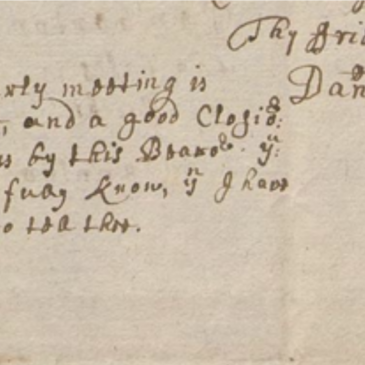 Thy frie
Dan
rly meeting is
, and a good Closie:
s by this Bearer. yn:
fully know, yn I have
o tell thee.